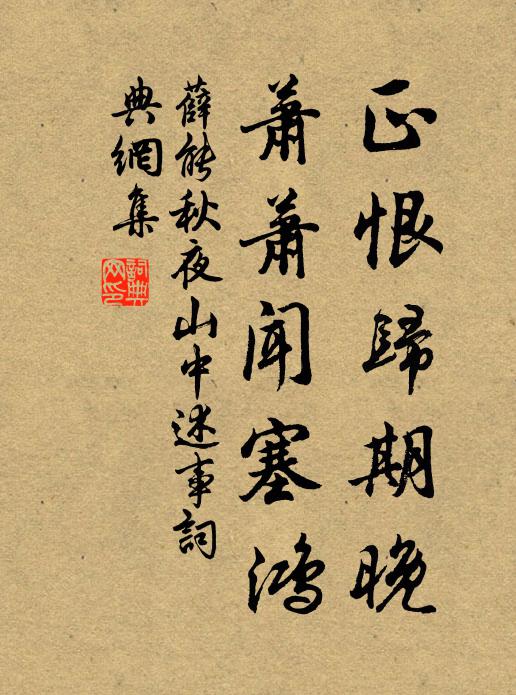 正恨歸期晚
蕭蕭聞塞鴻
薛能秋夜山中述事詞
典網集
詞典
网印